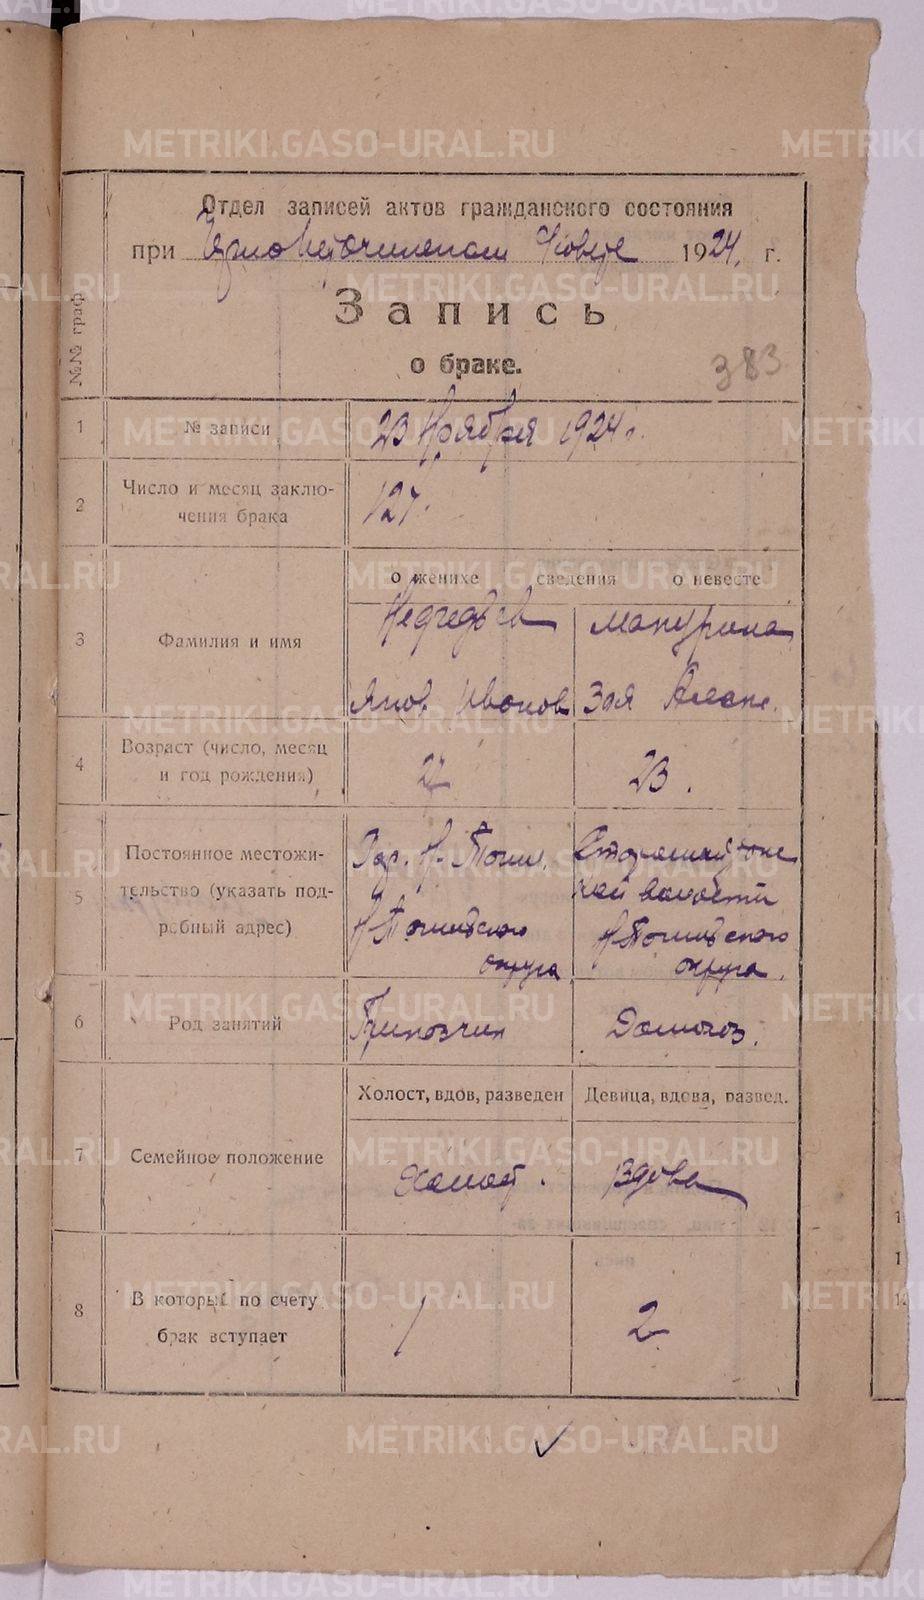 Отдел записей актов гражданского состояния
при Совете 1924 г.
Запись
о браке.
383
№№ граф
1 № записи 23 Ноября 1924 г.
2 Число и месяц заклю-
чения брака 127.
о женихе сведения о невесте
3 Фамилия и имя
Медведев
Яков Иванов Зоя Алекс.
4 Возраст (число, месяц
и год рождения) 23.
5 Постоянное местожи-
тельство (указать под-
робный адрес)
Гор. Н-Тагил.
волости
Н-Тагильского
округа
Н-Тагильского
округа.
6 Род занятий Домохоз.
7 Семейное положение
Холост, вдов, разведен Девица, вдова, развед.
Холост. Вдова
8 В который по счету
брак вступает 1 2
METRIKI.GASO-URAL.RU